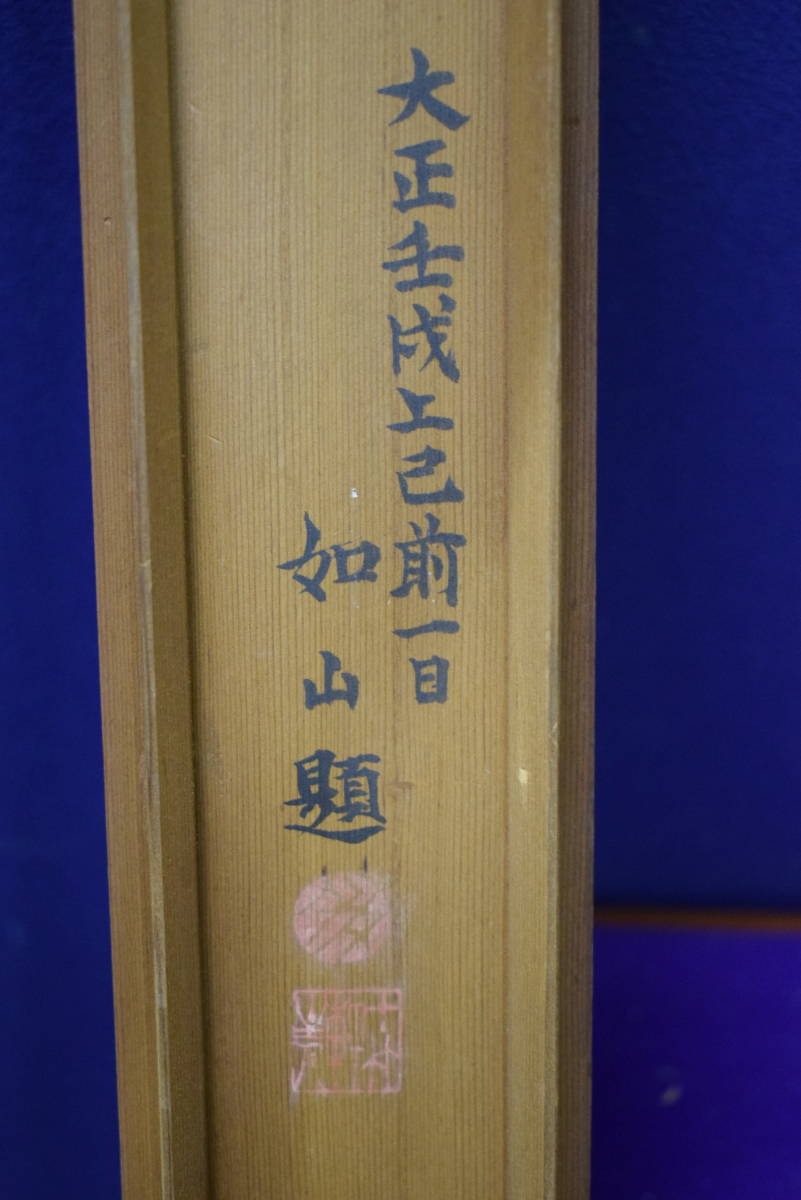 大正壬戌上巳前一日
如山題